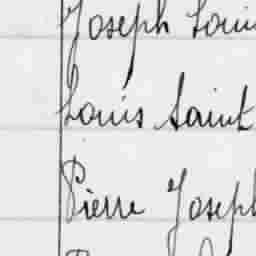 Joseph Louis
Louis Saint
Pierre Joseph